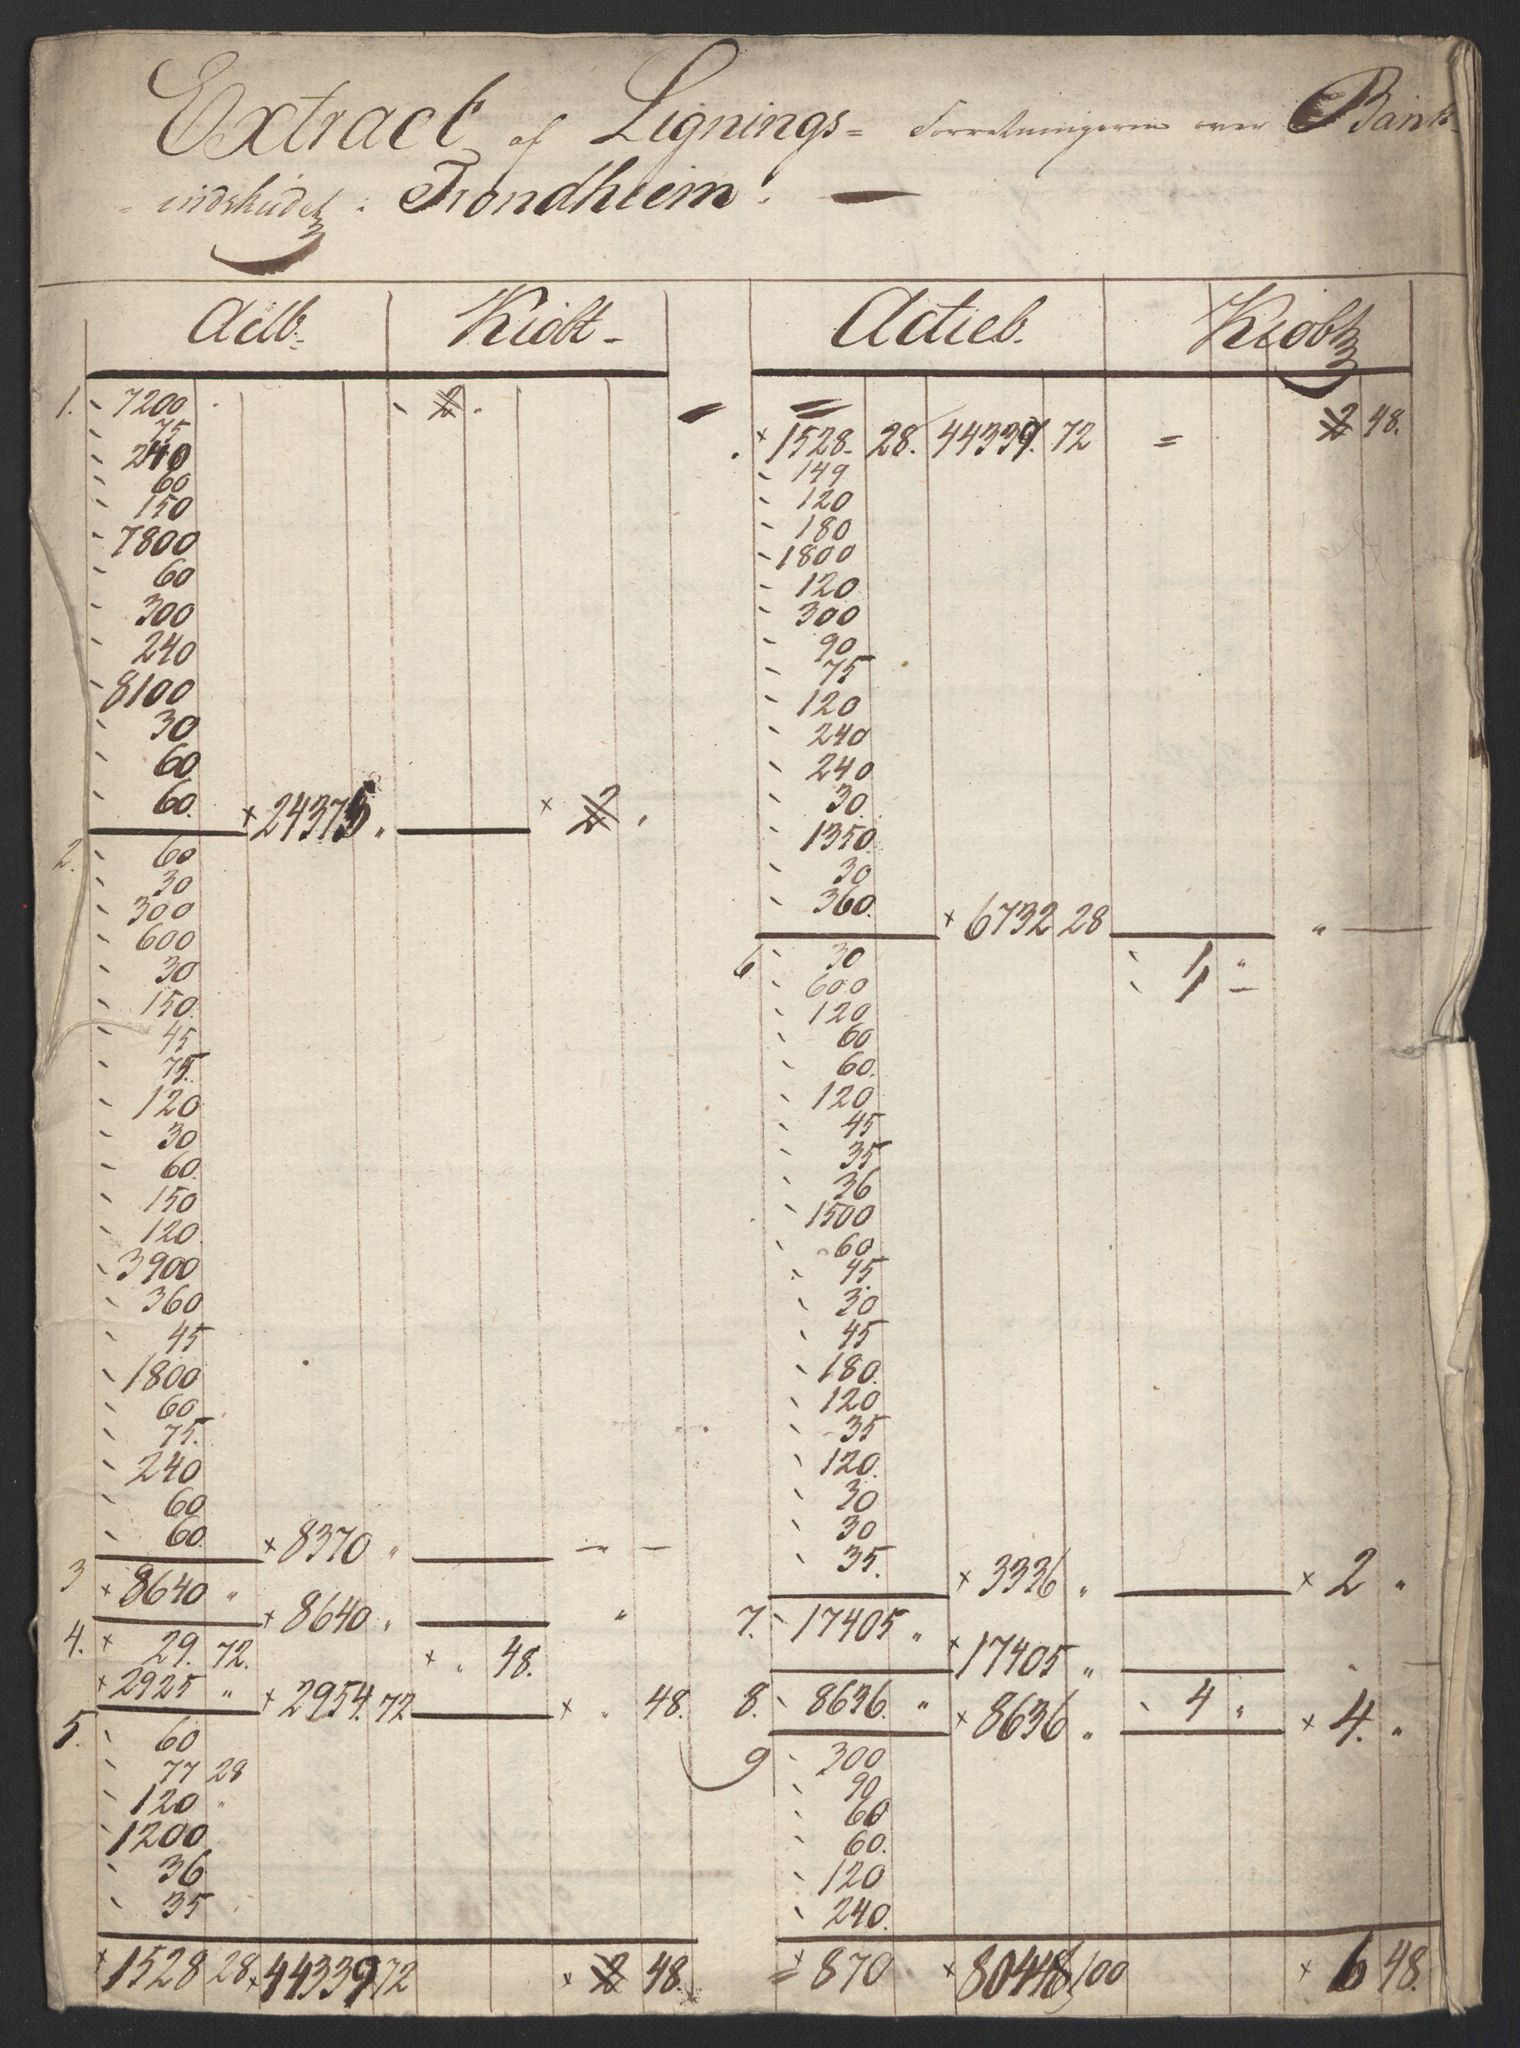 Extract af Lignings= Forretningerne over Bank
= indskudet i Trondheim. —
Actb. Kiøbt -
1. 7200 2.
75
240
60
150
7800
60
300
240
8100
30
60
60. × 24375 „ × 2 „
2. 60
30
300
600
30
150.
45
75.
120
30
60.
150
120.
3900
360
45
1800
60
75.
240
60
60. × 8370 „ — —
3 × 8640 „ × 8640 „ „
4. × 29. 72. × „ 48.
× 2925 „ × 2954. 72 × „ 48.
5. 60
77 28
120 „
1200
36
35
× 1528 28 × 44339 72 × 2 48.
Actieb. Kiøbt
× 1528. 28. 44339. 72 = 2 48.
149
120
180
1800
120
300
90
75
120
240
240
30
1350.
30
360. × 6732 28 „ —
6 30 1 „
600 1 —
120
60
60.
120
45
35
36
1500
60
45.
30
45
180.
120
35
120.
30
30
35. × 3336 „ × 2 „
7. 17405 „ × 17405 „ „ —
8. 8636. „ × 8636 „ 4 „ × 4. „
9 300
90
60
60.
120
240.
= 870 × 80448, 100 × 6 48.